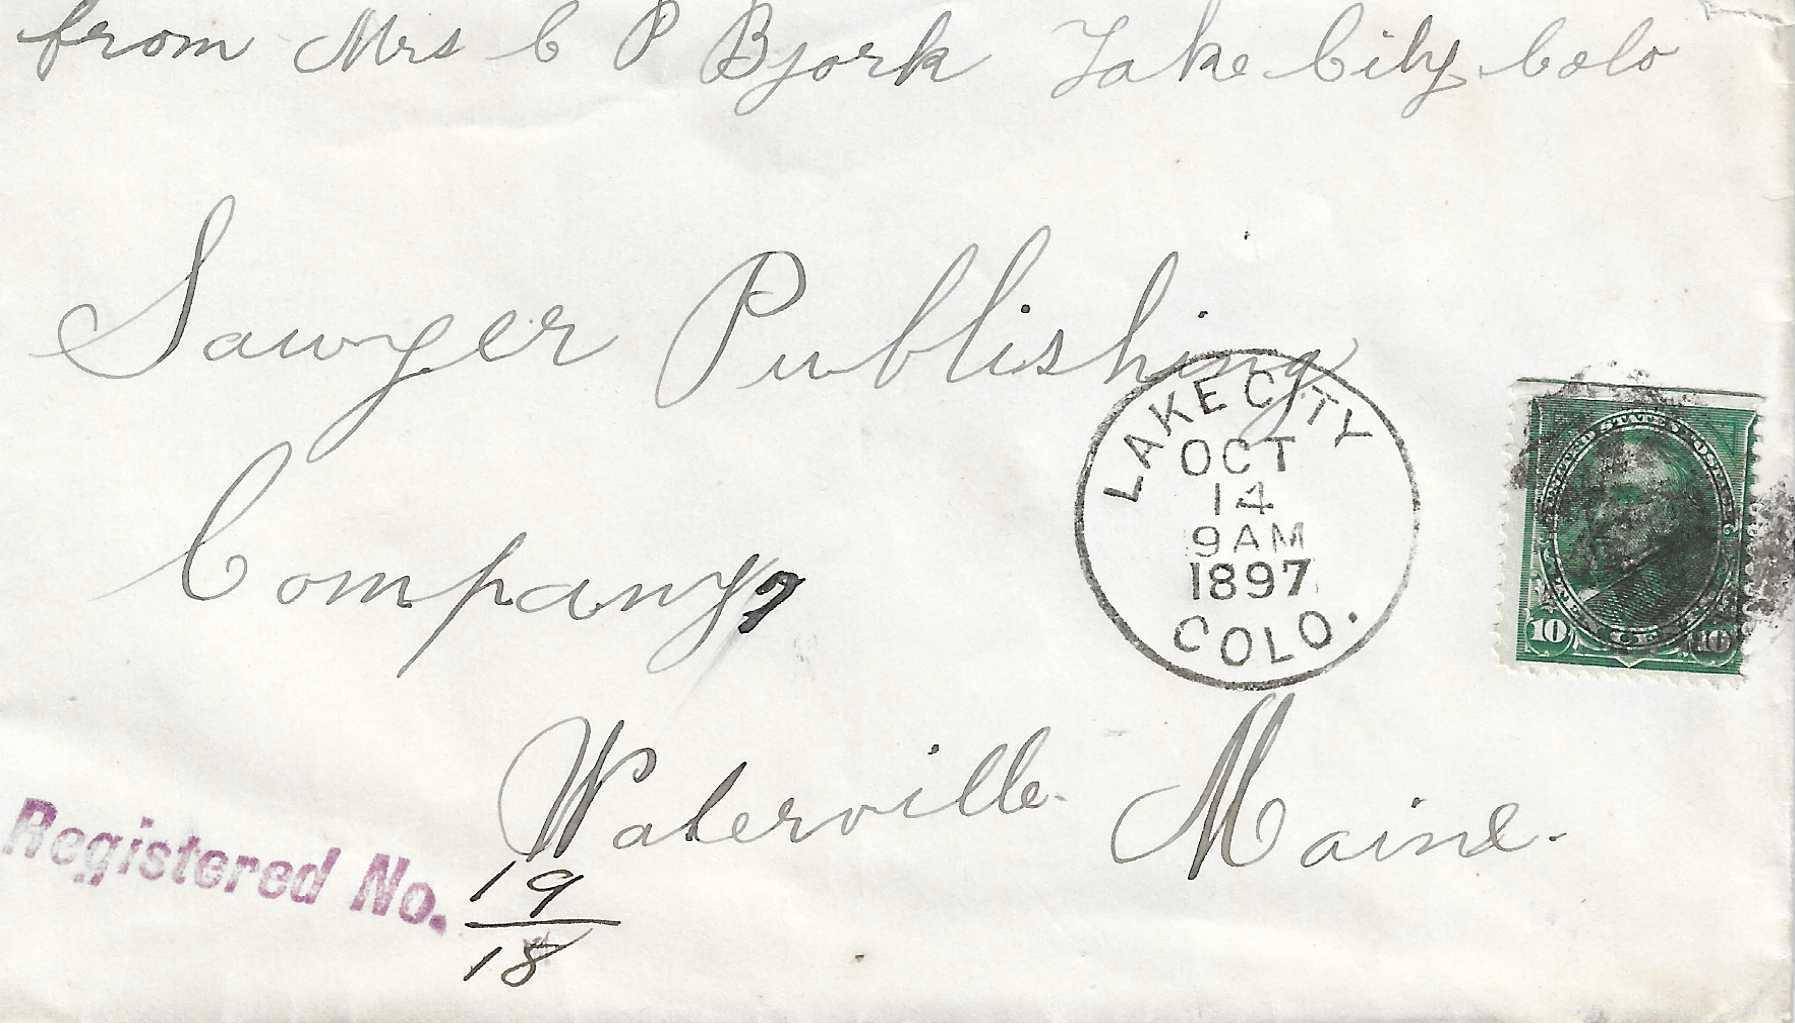 from Mrs C P Bjork Lake City Colo
Sawyer Publishing
Company,
LAKE CITY
OCT
14
9AM
1897
COLO.
10 10
Waterville Maine.
Registered No. 19
18